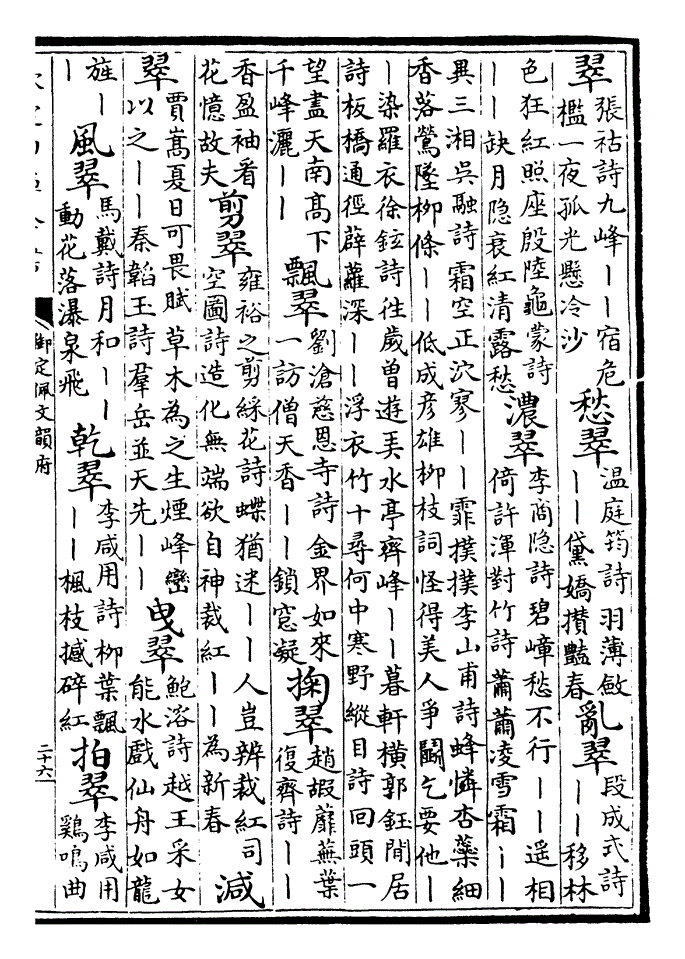 翠
張祜詩九峰丨丨宿危
檻一夜孤光懸冷沙
愁翠
溫庭筠詩羽薄斂
丨丨黛嬌攢豔春
亂翠
段成式詩
丨丨移林
色狂紅照座殷陸龜蒙詩
丨丨缺月隐衰紅清露愁
濃翠
李商隐詩碧嶂愁不行丨丨遥相
倚許渾對竹詩蕭蕭凌雪霜丨丨
異三湘吳融詩霜空正泬寥丨丨霏撲撲李山甫詩蜂憐杏蘂細
香落鶯墜柳條丨丨低成彦雄柳枝詞怪得美人爭鬬乞要他丨
丨染羅衣徐鉉詩徃歲曽遊弄水亭齊峰丨丨暮軒横郭鈺閒居
詩板橋通徑薜蘿深丨丨浮衣竹十尋何中寒野縱目詩回頭一
望盡天南髙下
千峰灑丨丨
飄翠
劉滄慈恩寺詩金界如來
一訪僧天香丨丨鎖窓凝
掬翠
趙嘏蘼蕪葉
復齊詩丨丨
香盈袖看
花憶故夫
剪翠
雍裕之剪綵花詩蝶猶迷丨丨人豈辨裁紅司
空圖詩造化無端欲自神裁紅丨丨為新春
減
翠
賈嵩夏日可畏賦草木為之生煙峰巒
以之丨丨秦韜玉詩羣岳並天先丨丨
曳翠
鮑溶詩越王采女
能水戲仙舟如龍
旌丨
丨
風翠
馬戴詩月和丨丨
動花落瀑泉飛
乾翠
李咸用詩柳葉飄
丨丨楓枝撼碎紅
拍翠
李咸用
鷄鳴曲
御定佩文韻府
二十六